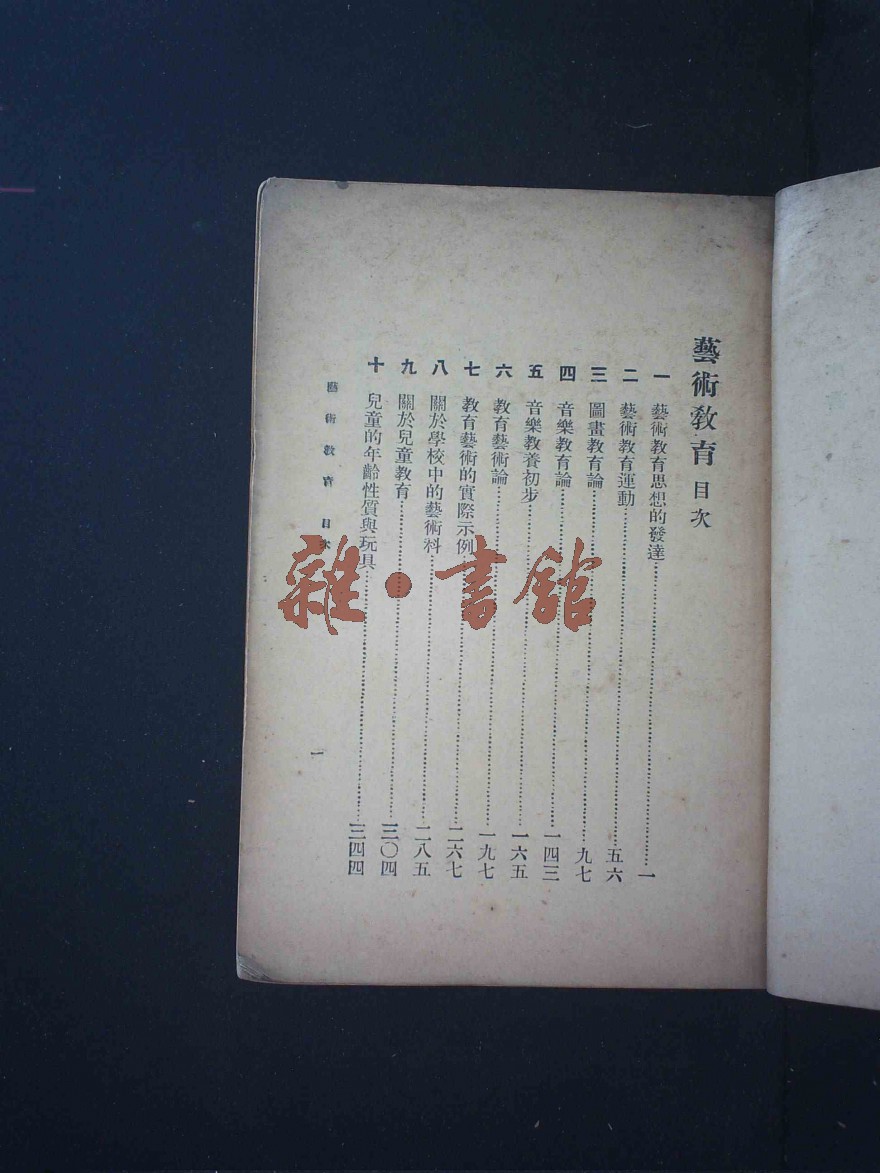 藝術教育 目次
一 藝術教育思想的發達……一
二 藝術教育運動……五六
三 圖畫教育論……九七
四 音樂教育論……一四三
五 音樂教養初步……一六五
六 教育藝術論……一九七
七 教育藝術的實際示例……二六七
八 關於學校中的藝術科……二八五
九 關於兒童教育……三〇四
十 兒童的年齡性質與玩具……三四四
藝術教育 目次
一
雜·書館